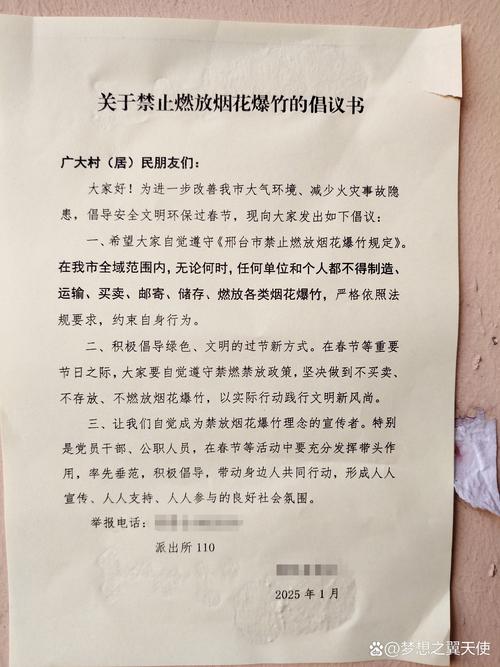 关于禁止燃放烟花爆竹的倡议书
广大村（居）民朋友们：
大家好！为进一步改善我市大气环境、减少火灾事故隐
患，倡导安全文明环保过春节，现向大家发出如下倡议：
一、希望大家自觉遵守《邢台市禁止燃放烟花爆竹规定》。
在我市全域范围内，无论何时，任何单位和个人都不得制造、
运输、买卖、邮寄、储存、燃放各类烟花爆竹，严格依照法
规要求，约束自身行为。
二、积极倡导绿色、文明的过节新方式。在春节等重要
节日之际，大家要自觉遵守禁燃禁放政策，坚决做到不买卖、
不存放、不燃放烟花爆竹，以实际行动践行文明新风尚。
三、让我们自觉成为禁放烟花爆竹理念的宣传者。特别
是党员干部、公职人员，在春节等活动中要充分发挥带头作
用，率先垂范，积极倡导，带动身边人共同行动，形成人人
宣传、人人支持、人人参与的良好社会氛围。
举报电话：
派出所 110
2025 年 1 月
百家号/梦想之翼天使